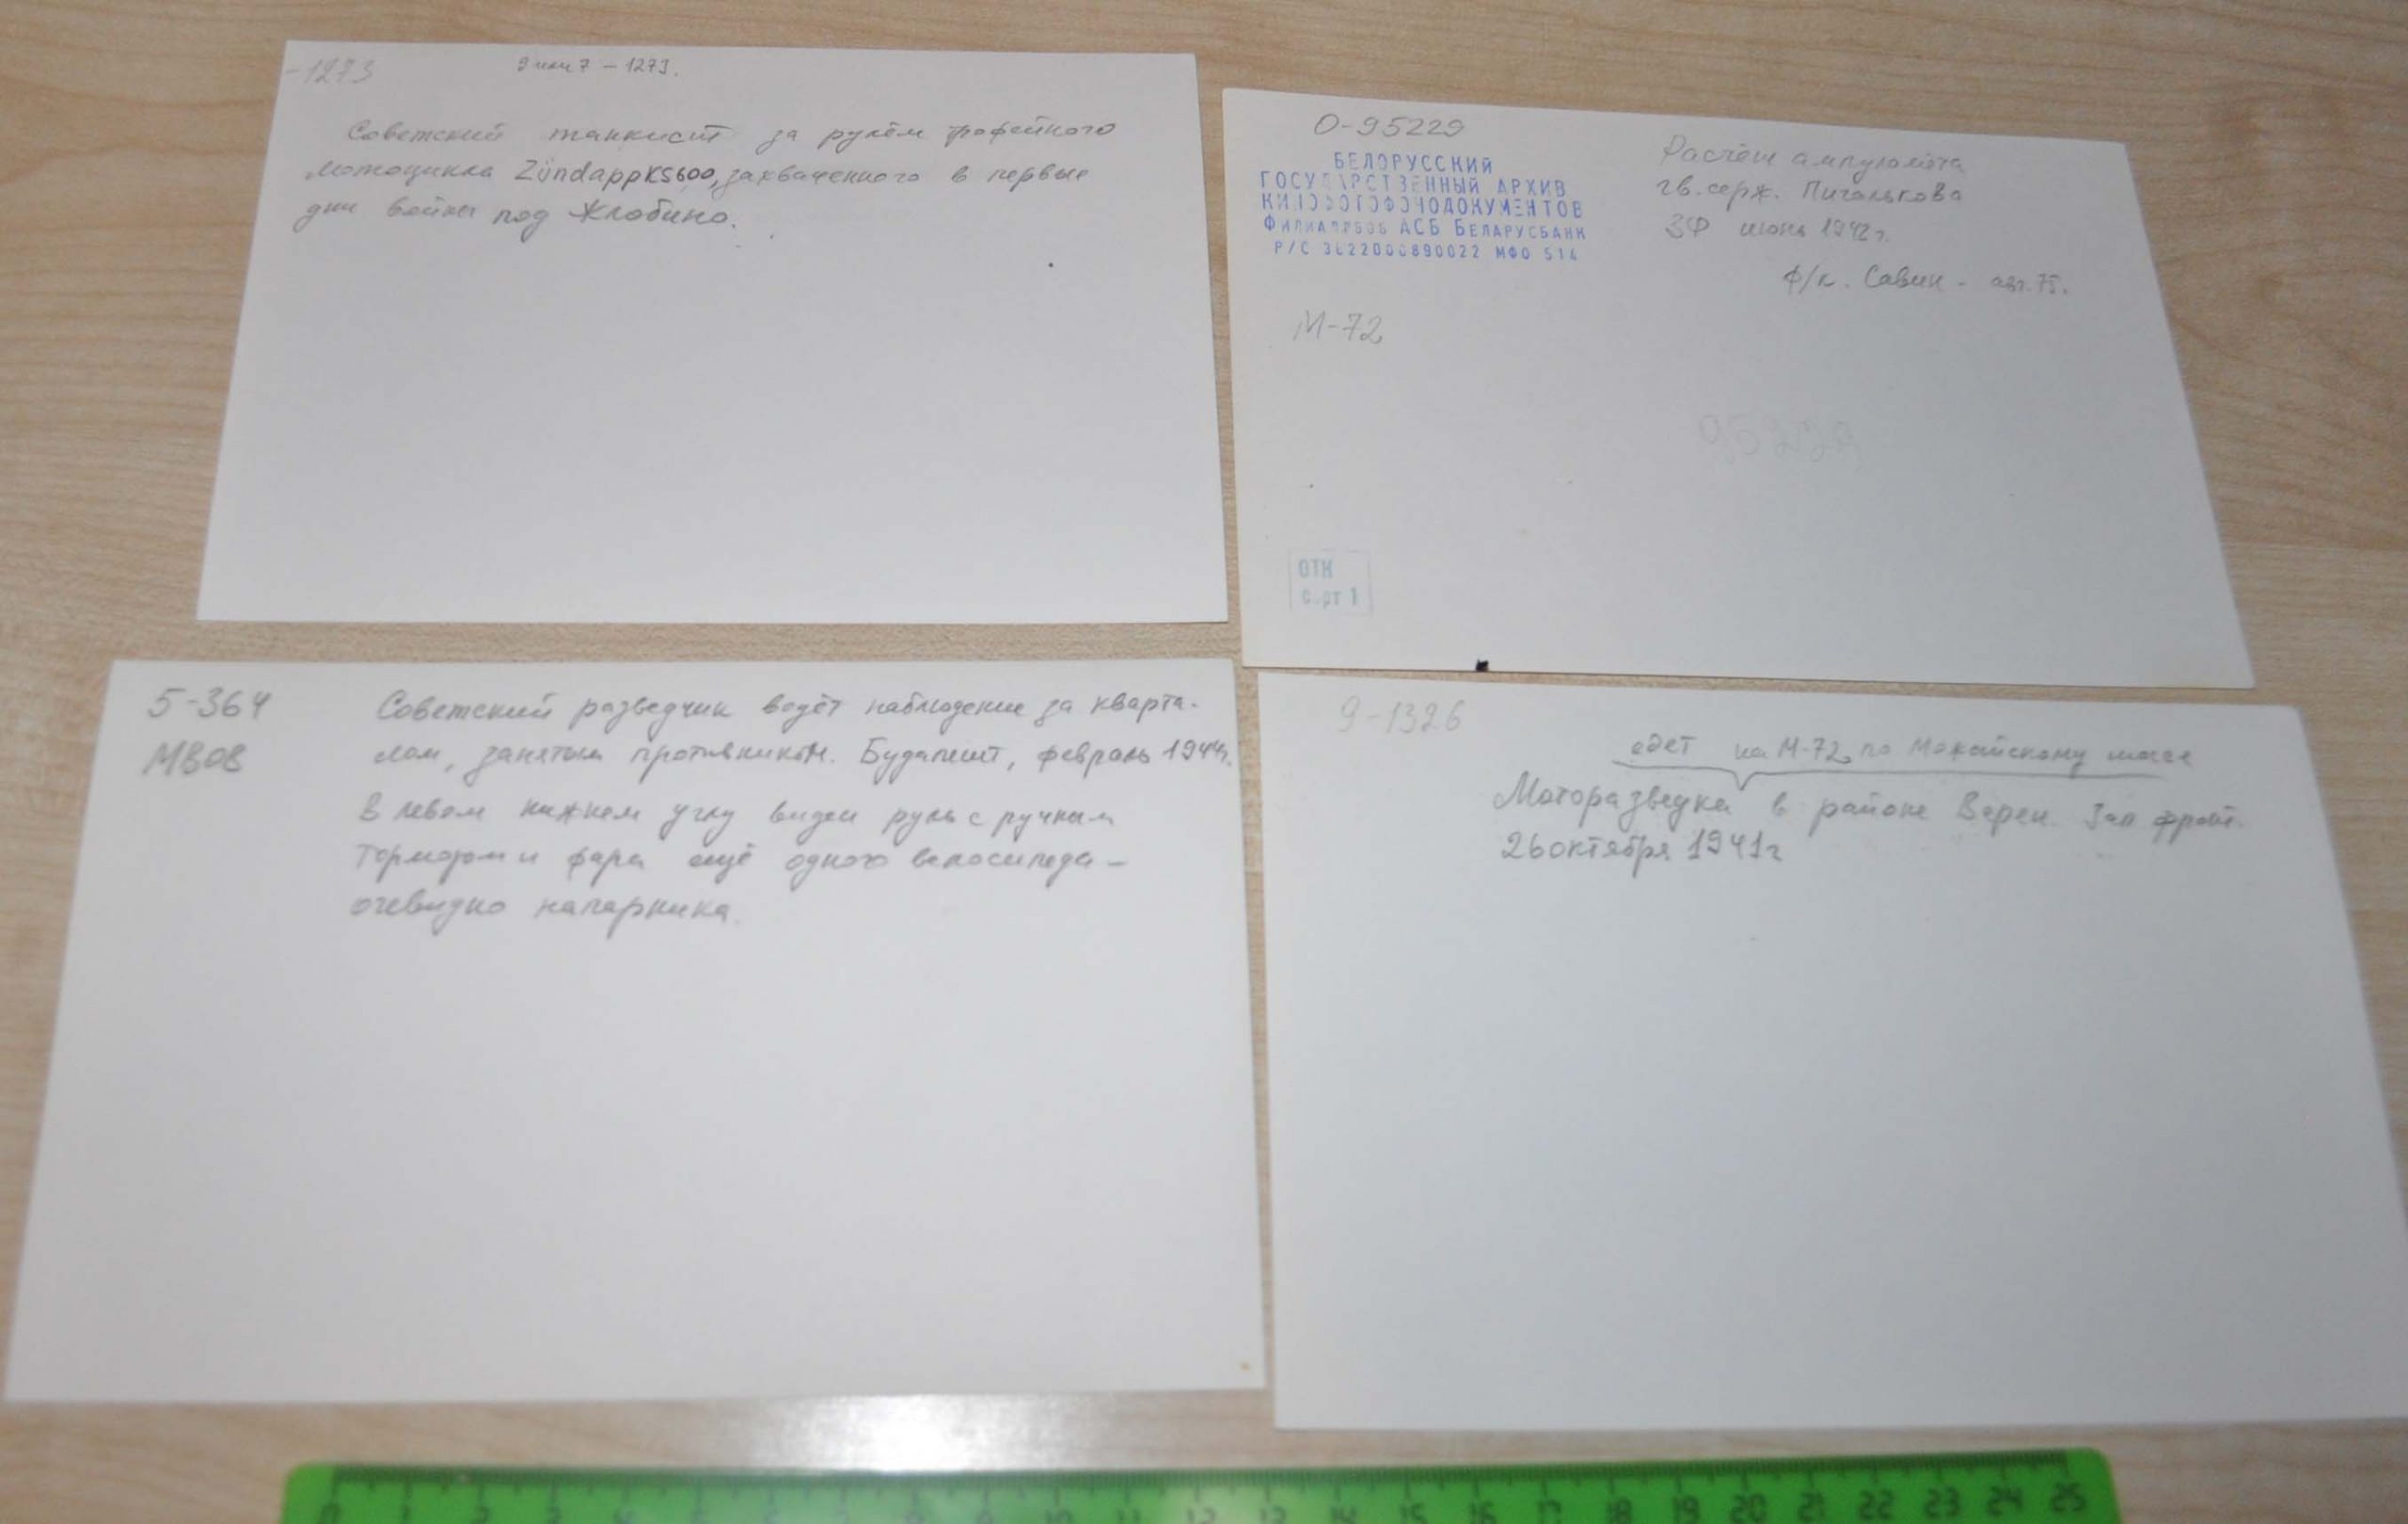 -1273
9 или 7 - 1273.
Советский танкист за рулём трофейного
мотоцикла Zündapp KS600, захваченного в первые
дни войны под Жлобино.
О-95229
БЕЛОРУССКИЙ
ГОСУДАРСТВЕННЫЙ АРХИВ
КИНОФОТОФОНОДОКУМЕНТОВ
АСБ БЕЛАРУСБАНК
МФО 514
Расчёт ампуломёта
гв. серж. Пичалькова
ЗФ июнь 1942 г.
ф/к. Савин - авг. 75.
М-72
95229
ОТК
5-364
МВ08
Советский разведчик ведёт наблюдение за кварта-
лом, занятым противником. Будапешт, февраль 1944г.
В левом нижнем углу виден руль с ручным
тормозом и фара ещё одного велосипеда -
очевидно напарника.
9-1326
едет на М-72 по Можайскому шоссе
Моторазведка в районе Вереи. Зап фронт.
26 октября 1941г
0 1 2 3 4 5 6 7 8 9 10 11 12 13 14 15 16 17 18 19 20 21 22 23 24 25